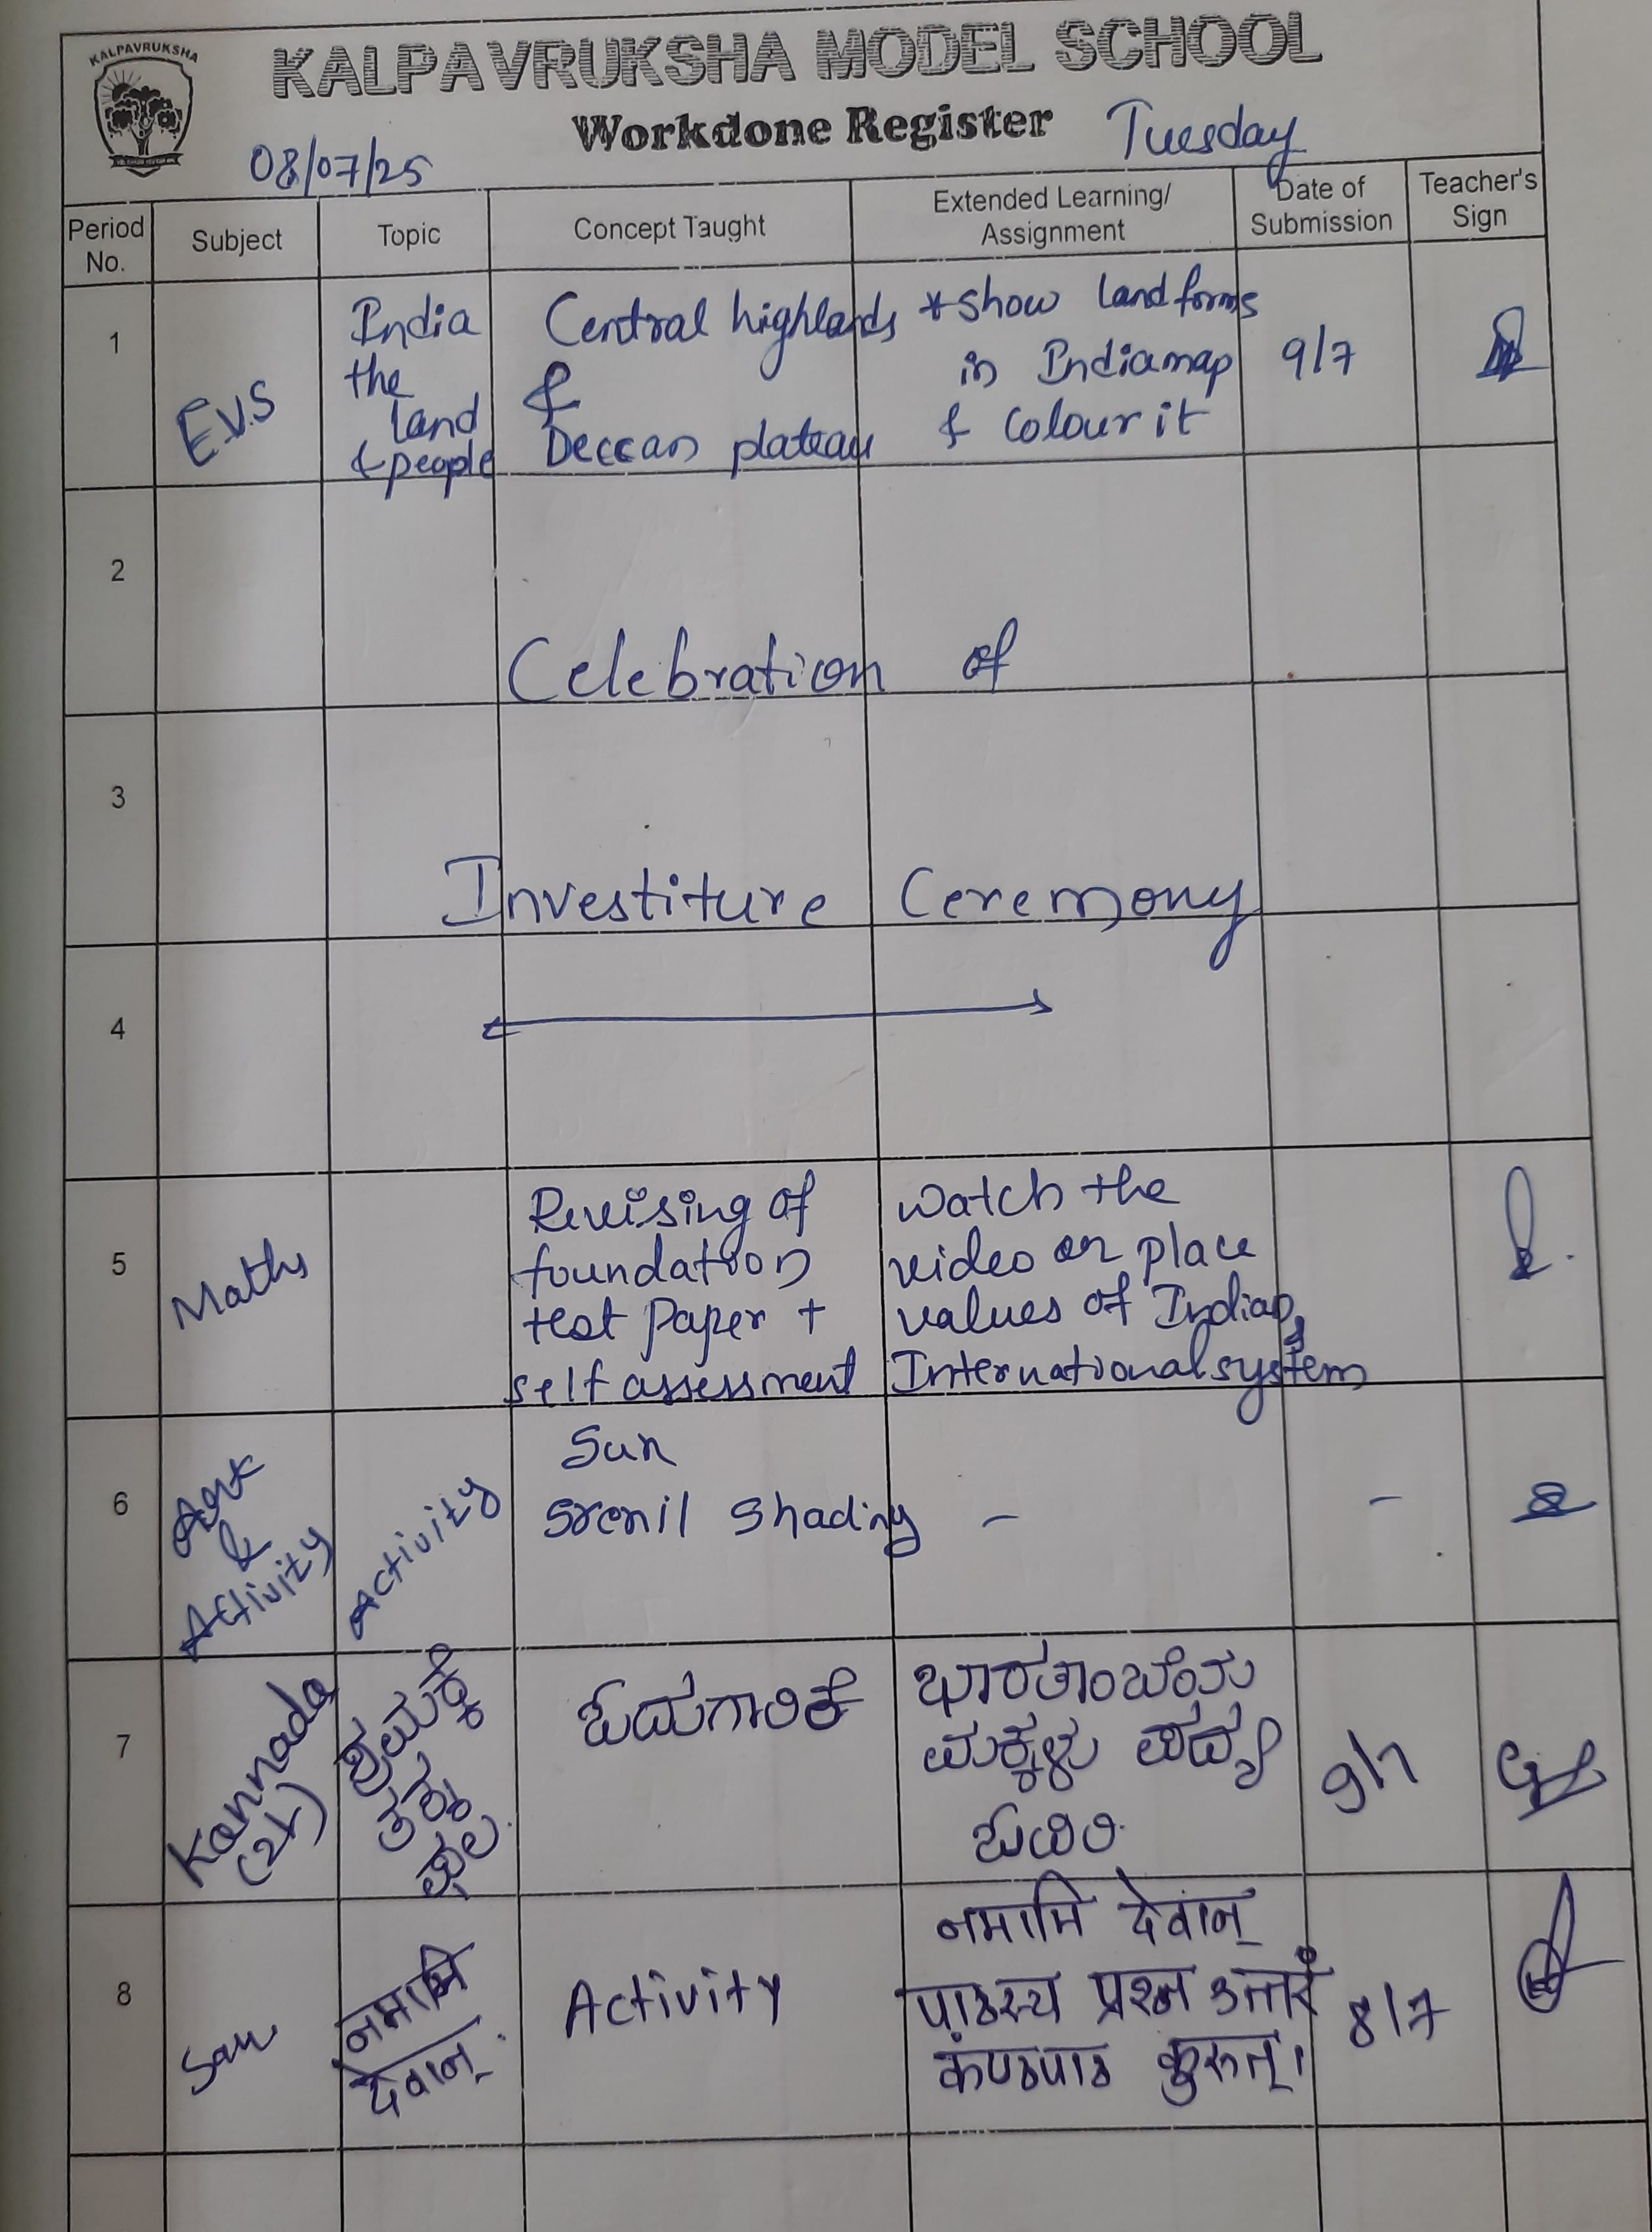 KALPAVRUKSHA
KALPAVRUKSHA MODEL SCHOOL
Workdone Register Tuesday
08/07/25
Period No.
Subject
Topic
Concept Taught
Extended Learning/
Assignment
Date of
Submission
Teacher's
Sign
1
E.V.S
India
the
land
& people
Central highlands
&
Deccan plateau
* show land forms
in India map
& colour it
9/7
2
Celebration of
3
Investiture Ceremony
4
5
Maths
Revising of
foundation
test paper +
self assessment
watch the
video on place
values of Indian &
International system
6
&
Activity
Activity
Sun
shading
-
-
7
Kannada
(2L)
ಶ್ರಮಕ್ಕೆ
ತಕ್ಕ
ಫಲ.
ಓದುಗಾರಿಕೆ
ಭಾರತಾಂಬೆಯ
ಮಕ್ಕಳು ಪದ್ಯ
ಓದಿರಿ.
9/7
8
San
नमामि
देवान्.
Activity
नमामि देवान्
पाठस्य प्रश्न उत्तरं
कंण्ठपाठ कुरुत्।
8/7